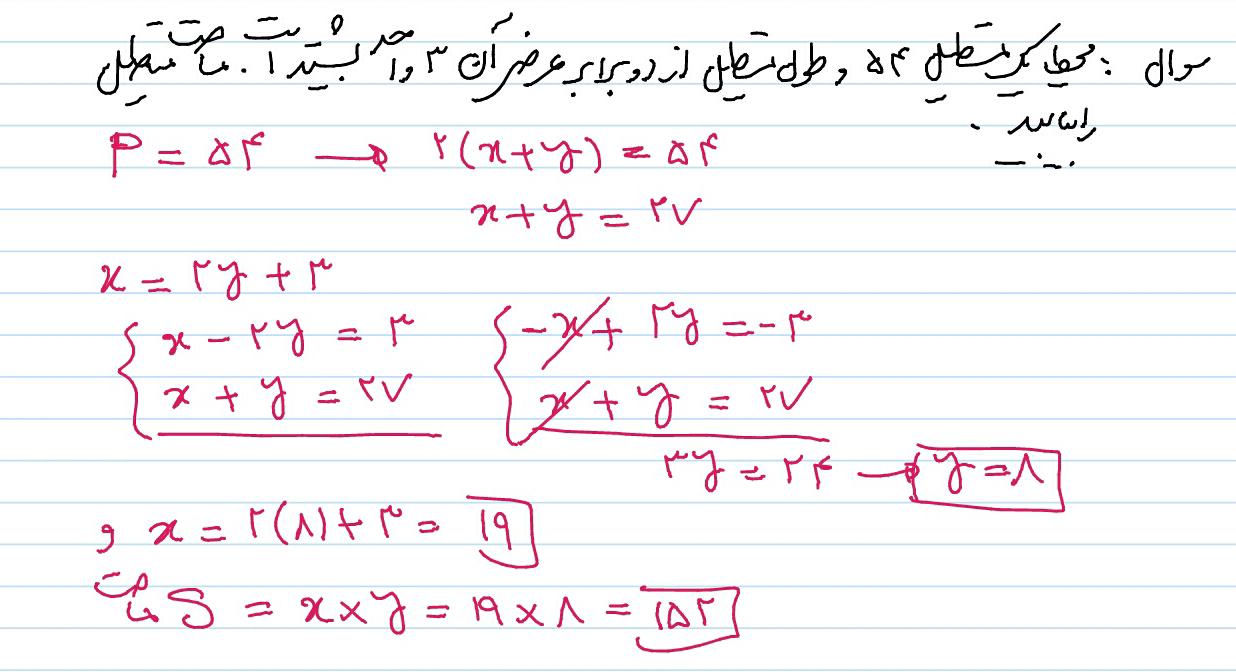 سوال : محیط یک مستطیل ۵۴ و طول مستطیل از دو برابر عرض آن ۳ واحد بیشتر است . مساحت مستطیل
را بیابید .
P = ۵۴ → ۲(x+y) = ۵۴
x+y = ۲۷
x = ۲y + ۳
{ x - ۲y = ۳ { -x + ۲y = -۳
x + y = ۲۷ x + y = ۲۷
۳y = ۲۴ → y = ۸
و x = ۲(۸) + ۳ = ۱۹
مساحت S = x × y = ۱۹ × ۸ = ۱۵۲